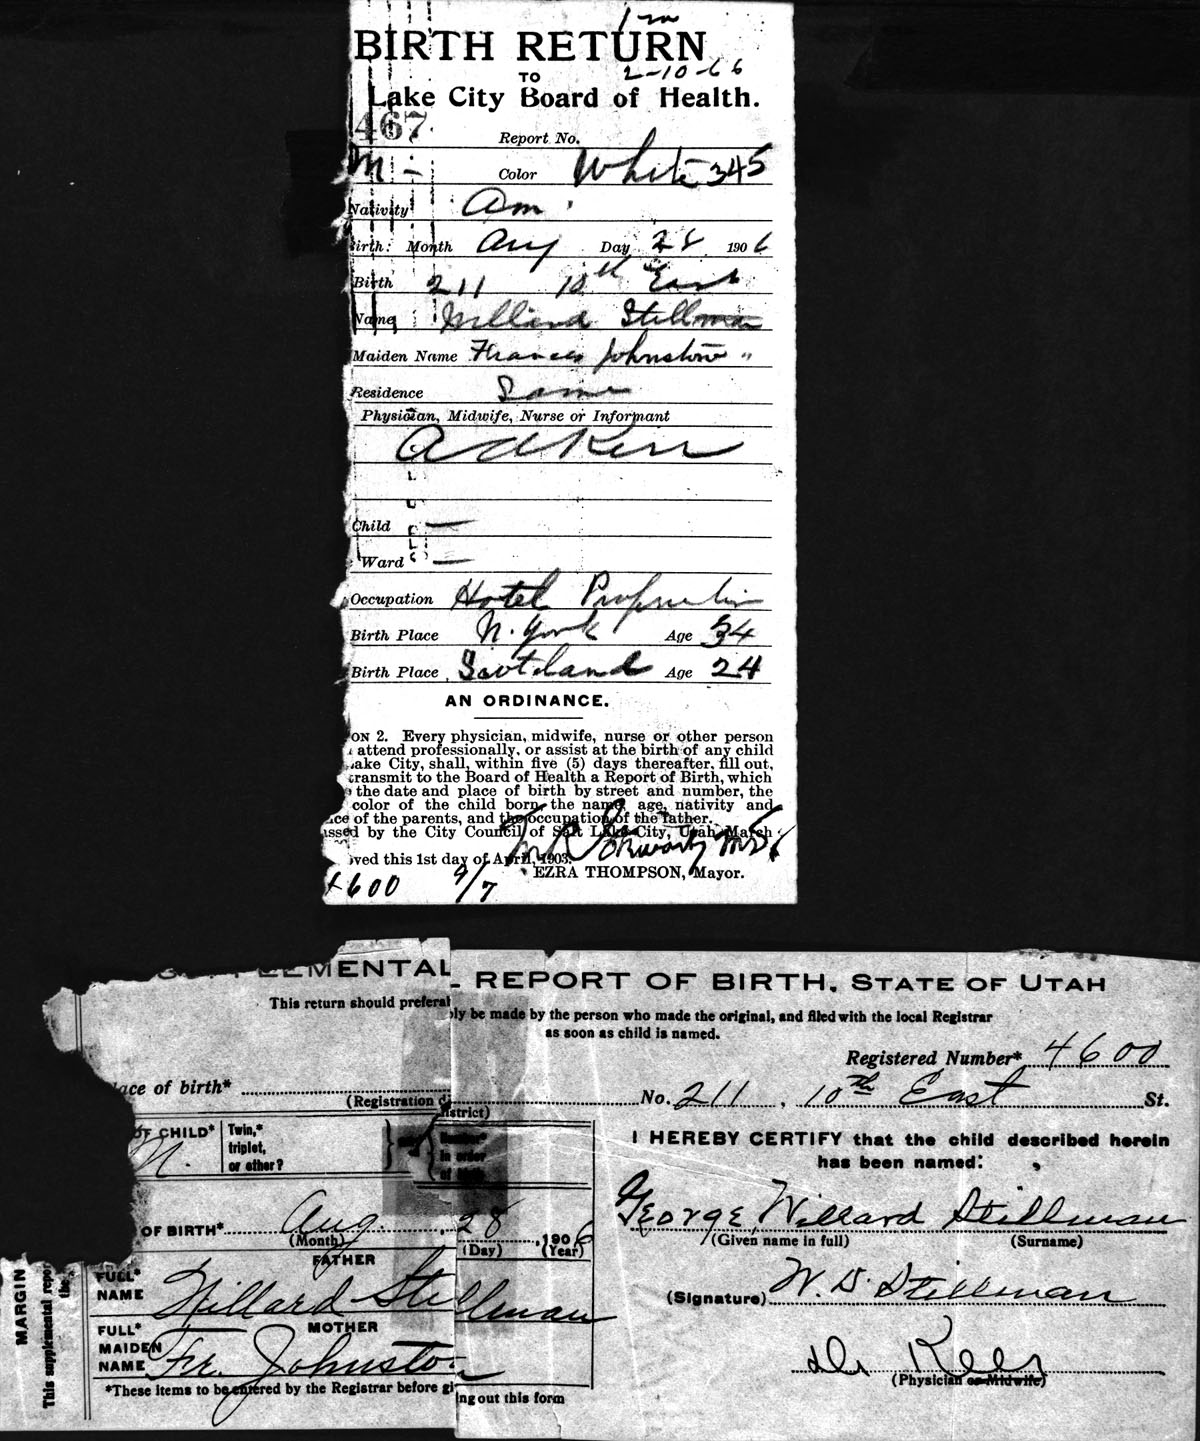 BIRTH RETURN
TO 2-10-66
Lake City Board of Health.
467
Report No.
M - Color White 345
Nativity Am.
Birth: Month Aug Day 28 1906
Birth 211 10th East
Name Willard Stillman
Maiden Name Frances Johnston "
Residence Same
Physician, Midwife, Nurse or Informant
Child —
Ward —
Occupation Hotel Proprietor
Birth Place N. York Age 34
Birth Place Scotland Age 24
AN ORDINANCE.
ON 2. Every physician, midwife, nurse or other person
attend professionally, or assist at the birth of any child
ake City, shall, within five (5) days thereafter, fill out,
transmit to the Board of Health a Report of Birth, which
the date and place of birth by street and number, the
color of the child born, the name, age, nativity and
ce of the parents, and the occupation of the father.
assed by the City Council of Salt Lake City, Utah, March
ved this 1st day of April, 1903.
EZRA THOMPSON, Mayor.
4600 9/7
SUPPLEMENTAL REPORT OF BIRTH, STATE OF UTAH
This return should preferably be made by the person who made the original, and filed with the local Registrar
as soon as child is named.
Registered Number* 4600
lace of birth* No. 211, 10th East St.
(Registration district)
OF CHILD* M. Twin,* triplet, or other? Number* in order of birth
I HEREBY CERTIFY that the child described herein
has been named:
OF BIRTH* Aug. 28, 1906
(Month) (Day) (Year)
George Willard Stillman
(Given name in full) (Surname)
FATHER
FULL* NAME Willard Stillman
(Signature) W. D. Stillman
MOTHER
FULL* MAIDEN NAME Fr. Johnston
(Physician or Midwife)
*These items to be entered by the Registrar before giving out this form
MARGIN
This supplemental repor
the